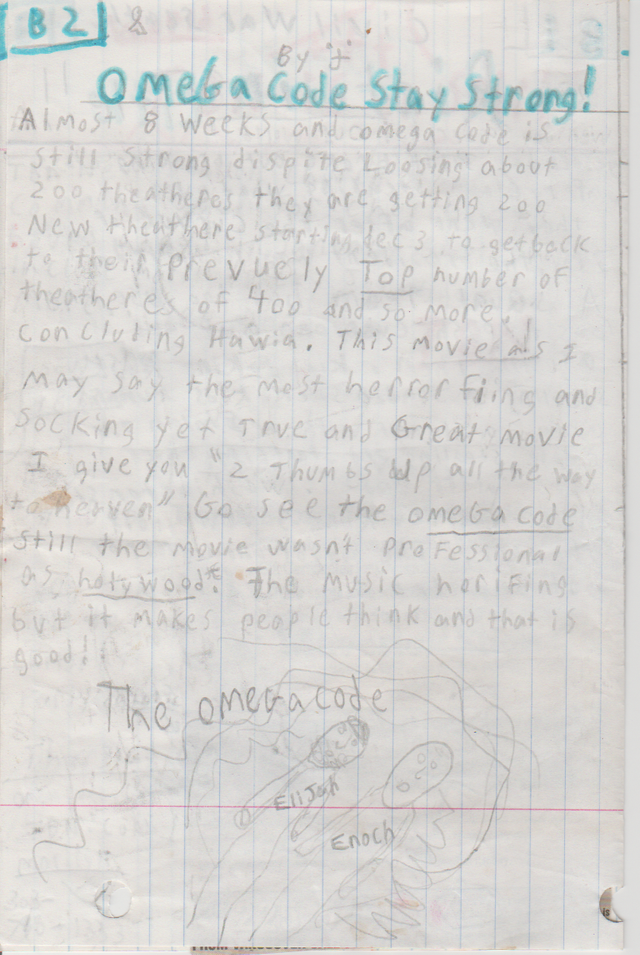 B 2
By j
Omega Code Stay Strong!
Almost 8 weeks and omega code is
still strong dispite Loosing about
200 theatheres they are getting 200
New theathere starting dec 3 to get back
to their prevuely Top number of
theatheres of 400 and so more.
concluding Hawia. This movie as I
may say the most horrorfiing and
socking yet true and Great movie
I give you "2 Thumbs up all the way
to heaven" Go see the omega code
still the movie wasn't professional
as holywood. The music horifing
but it makes people think and that is
good!
The omega code
Elijah
Enoch